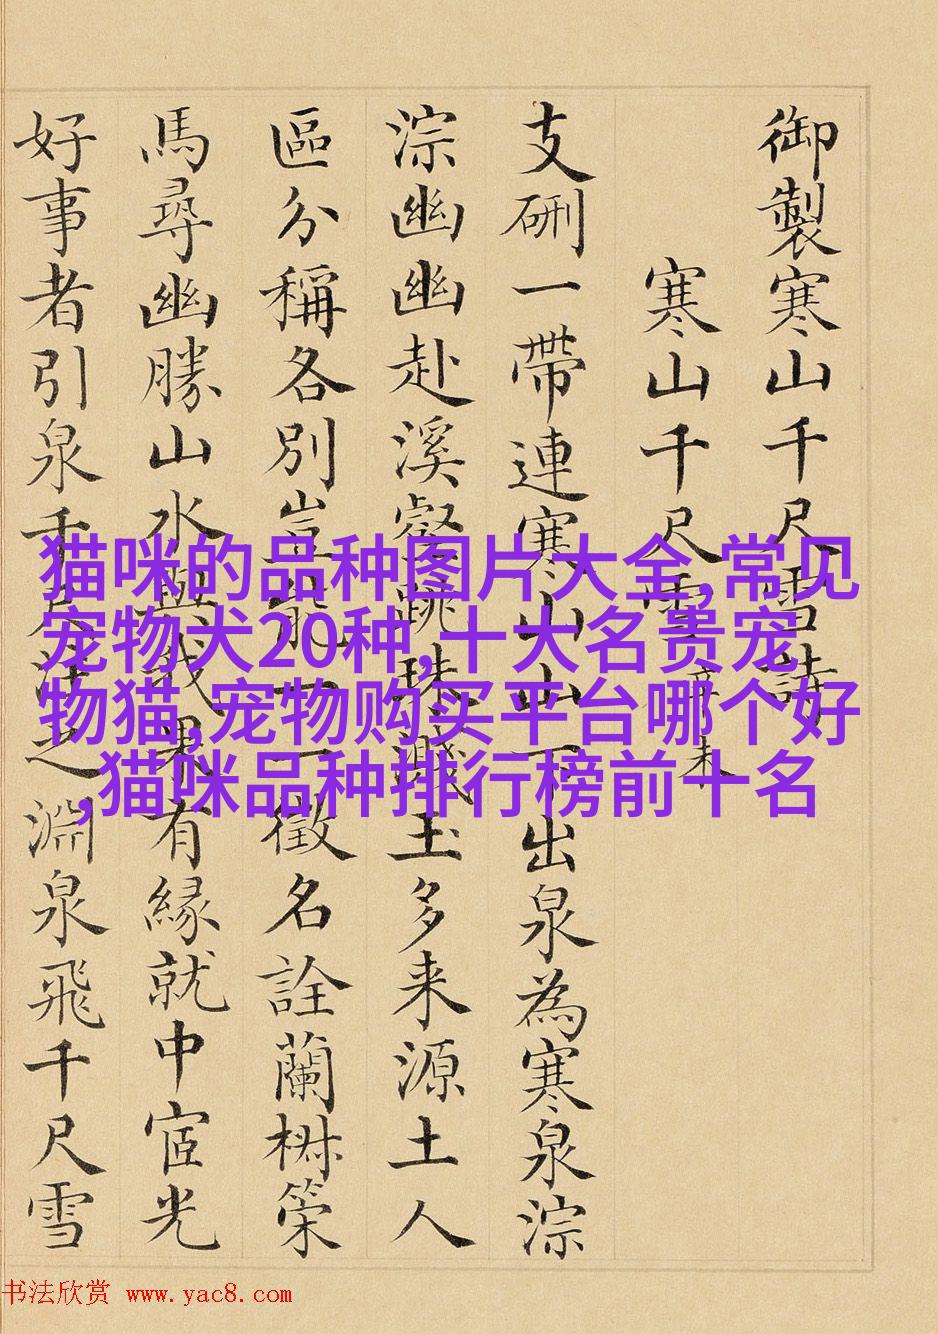 御製寒山千尺雪詩
寒山千尺雪 辛未
支硎一帶連寒山山下出泉為寒泉淙
淙幽幽赴溪壑跳珠濺玉多来源土人
區分稱各別豈能一一徵名詮蘭椒策
馬尋幽勝山水與我果有緣就中宦光
好事者引泉千尺注之淵泉飛千尺雪
猫咪的品种图片大全,常见
宠物犬20种,十大名贵宠
物猫,宠物购买平台哪个好
,猫咪品种排行榜前十名
书法欣赏 www.yac8.com